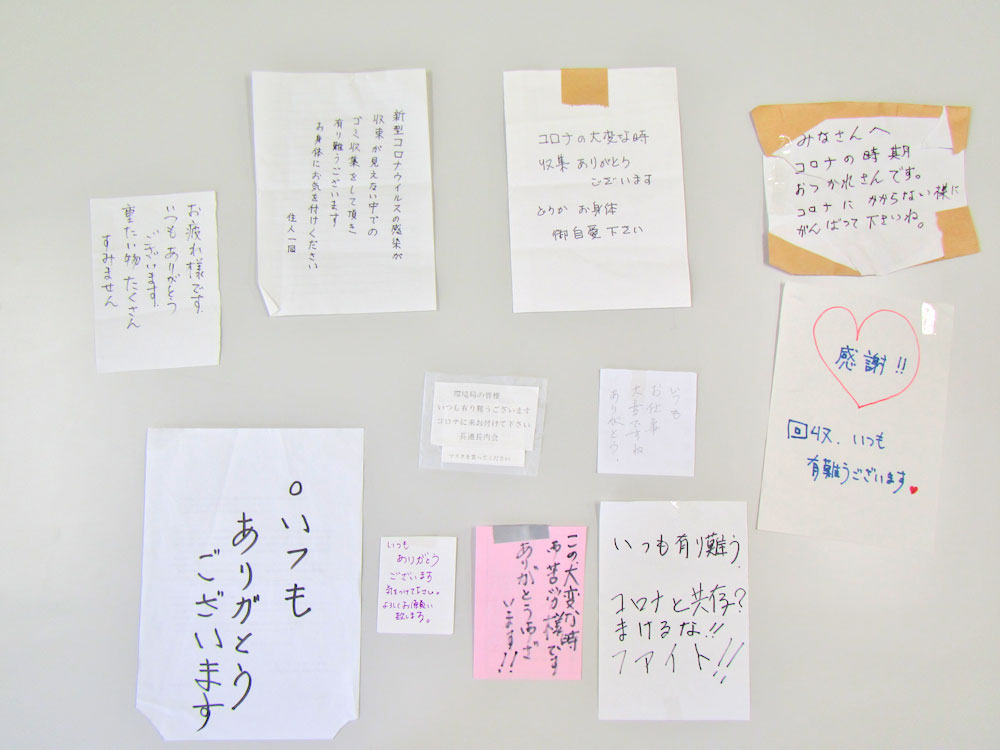 お疲れ様です.
いつもありがとう
ございます.
重たい物 たくさん
すみません
新型コロナウイルスの感染が
収束が見えない中での
ゴミ収集をして頂き
有り難うございます
お身体にお気を付けください
住人一同
コロナの大変な時
収集ありがとう
ございます
どうか お身体
御自愛下さい
みなさんへ
コロナの時期
おつかれさんです。
コロナに かからない様に
がんばって下さいね。
環境局の皆様
いつも有り難うございます
コロナに気お付けて下さい
長通長内会
マスクを買ってください
いつも
お仕事
大変ですね
ありがとう.
感謝!!
回収.いつも
有難うございます。
。いつも
ありがとう
ございます
いつも
ありがとう
ございます
気をつけて下さい。
よろしくお願い
致します。
この大変な時
御苦労様です
ありがとうござ
います!!
いつも有り難う.
コロナと共存?
まけるな!!
ファイト!!